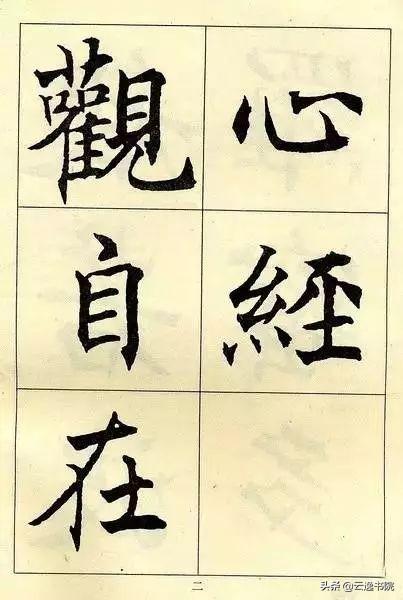 心經
觀自在
二
头条 @云逸书院